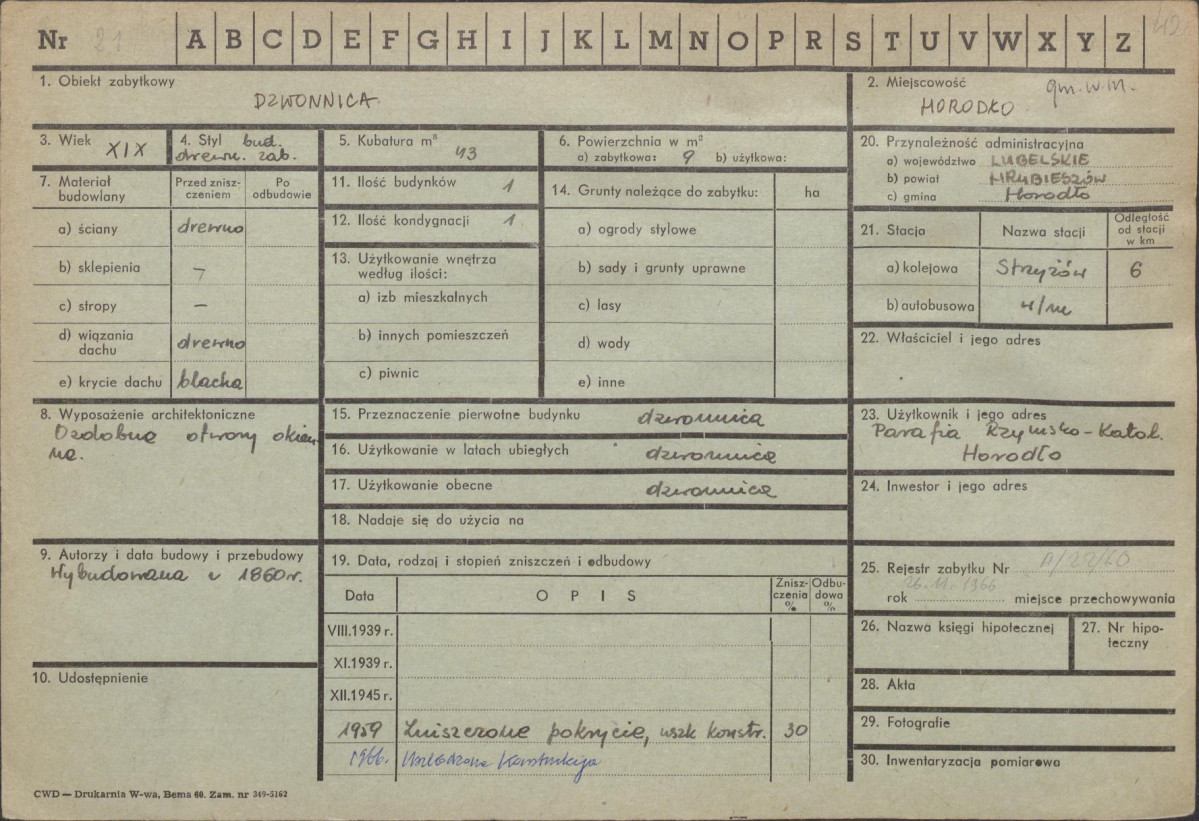 Nr 21 A B C D E F G H I J K L M N O P R S T U V W X Y Z 42
1. Obiekt zabytkowy
DZWONNICA
2. Miejscowość gm. w m.
HORODŁO
3. Wiek XIX
4. Styl bud.
drewn. zab.
5. Kubatura m³ 43
6. Powierzchnia w m²
a) zabytkowa: 9 b) użytkowa:
7. Materiał budowlany
Przed zniszczeniem
Po odbudowie
a) ściany drewno
b) sklepienia –
c) stropy –
d) wiązania dachu drewno
e) krycie dachu blacha
8. Wyposażenie architektoniczne
Ozdobne otwory okien
ne.
9. Autorzy i data budowy i przebudowy
Wybudowana w 1860 r.
10. Udostępnienie
11. Ilość budynków 1
12. Ilość kondygnacji 1
13. Użytkowanie wnętrza
według ilości:
a) izb mieszkalnych
b) innych pomieszczeń
c) piwnic
14. Grunty należące do zabytku: ha
a) ogrody stylowe
b) sady i grunty uprawne
c) lasy
d) wody
e) inne
15. Przeznaczenie pierwotne budynku dzwonnica
16. Użytkowanie w latach ubiegłych dzwonnica
17. Użytkowanie obecne dzwonnica
18. Nadaje się do użycia na
19. Data, rodzaj i stopień zniszczeń i odbudowy
Data OPIS Zniszczenia % Odbudowa %
VIII.1939 r.
XI.1939 r.
XII.1945 r.
1959 Zniszczone pokrycie, uszk konstr. 30
1966. Uszkodzona Konstrukcja
20. Przynależność administracyjna
a) województwo LUBELSKIE
b) powiat HRUBIESZÓW
c) gmina Horodło
21. Stacja Nazwa stacji Odległość od stacji w km
a) kolejowa Strzyżów 6
b) autobusowa
22. Właściciel i jego adres
23. Użytkownik i jego adres
Parafia Rzymsko-Katol.
Horodło
24. Inwestor i jego adres
25. Rejestr zabytku Nr A/22/60
rok 26.11.1966 miejsce przechowywania
26. Nazwa księgi hipotecznej
27. Nr hipoteczny
28. Akta
29. Fotografie
30. Inwentaryzacja pomiarowa
CWD — Drukarnia W-wa, Bema 60. Zam. nr 349-5162